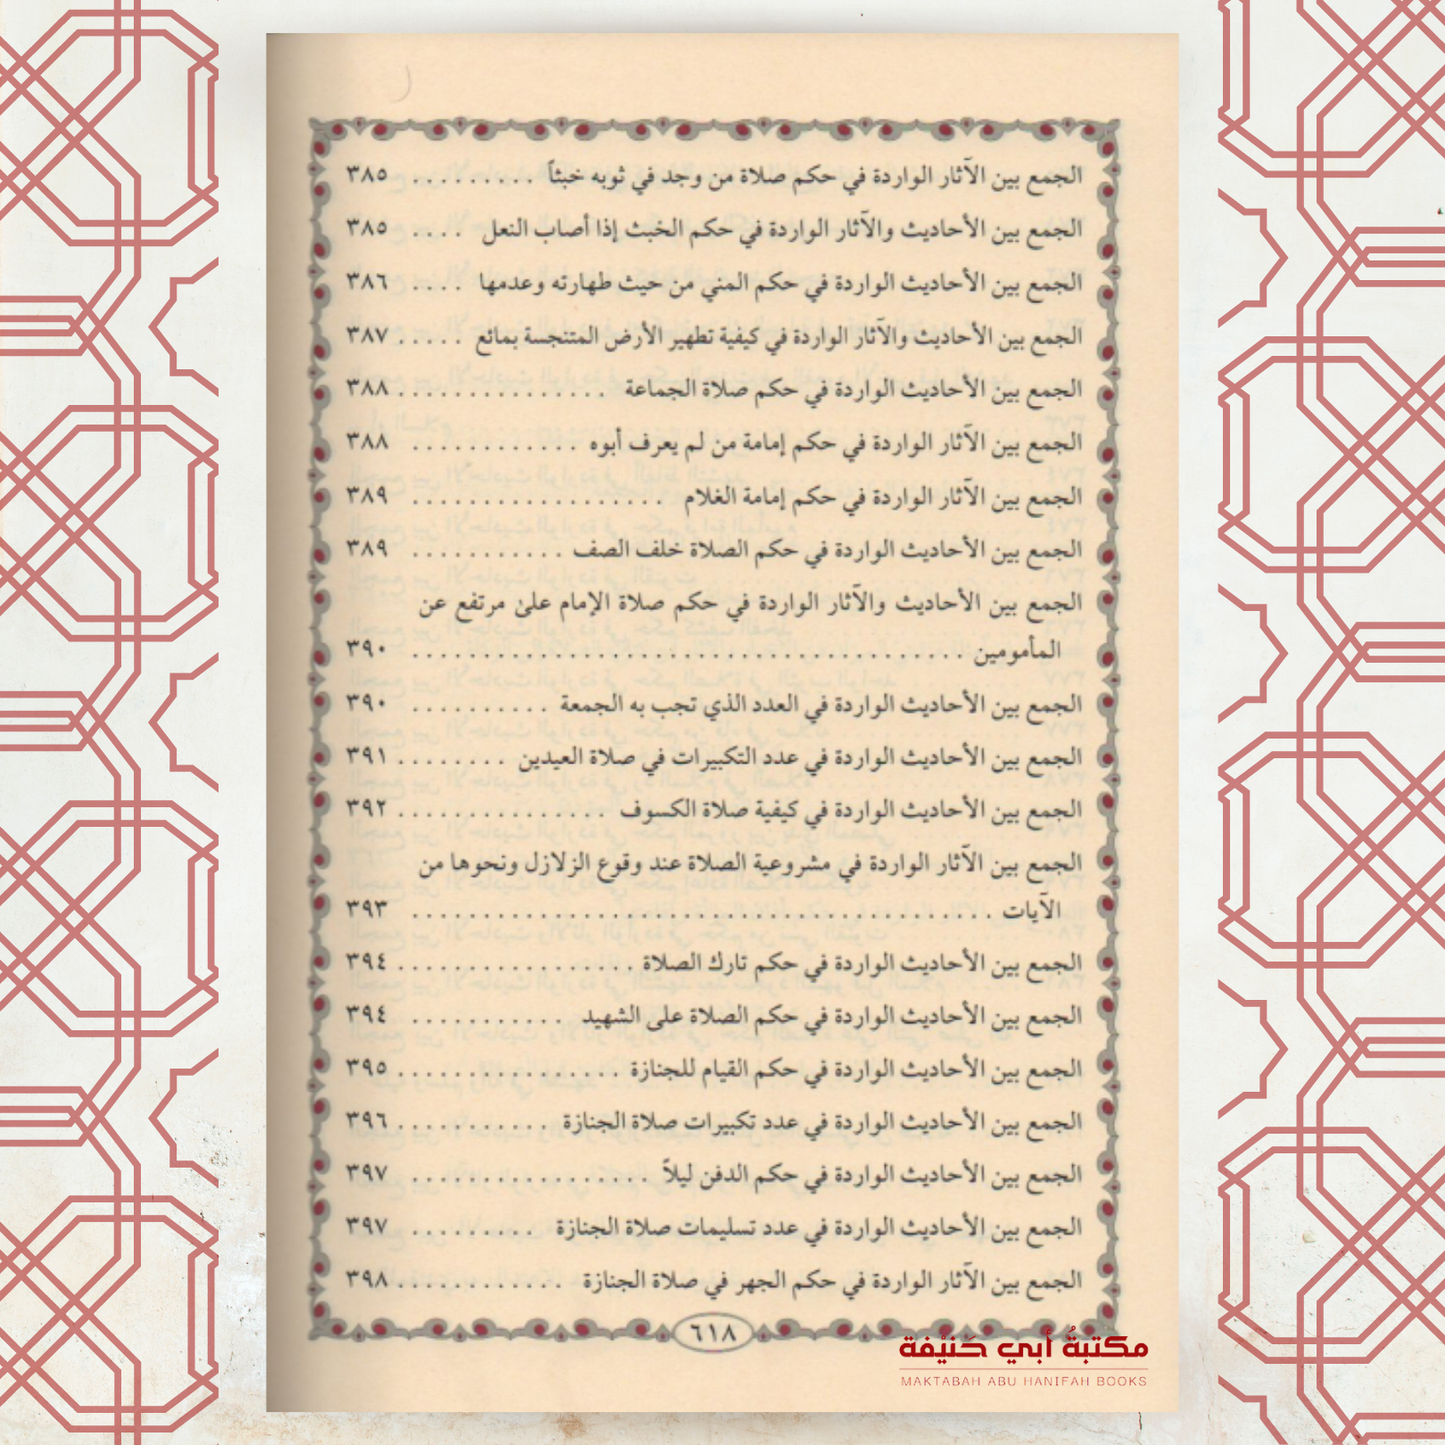 الجمع بين الآثار الواردة في حكم صلاة من وجد في ثوبه خبثاً . . . . . . . . . ٣٨٥
الجمع بين الأحاديث والآثار الواردة في حكم الخبث إذا أصاب النعل . . . . ٣٨٥
الجمع بين الأحاديث الواردة في حكم المني من حيث طهارته وعدمها . . . . ٣٨٦
الجمع بين الأحاديث والآثار الواردة في كيفية تطهير الأرض المتنجسة بمائع . . . . . ٣٨٧
الجمع بين الأحاديث الواردة في حكم صلاة الجماعة . . . . . . . . . . . . . . . ٣٨٨
الجمع بين الآثار الواردة في حكم إمامة من لم يعرف أبوه . . . . . . . . . . . . ٣٨٨
الجمع بين الآثار الواردة في حكم إمامة الغلام . . . . . . . . . . . . . . . . . . ٣٨٩
الجمع بين الأحاديث الواردة في حكم الصلاة خلف الصف . . . . . . . . . . . ٣٨٩
الجمع بين الأحاديث والآثار الواردة في حكم صلاة الإمام علىٰ مرتفع عن
المأمومين . . . . . . . . . . . . . . . . . . . . . . . . . . . . . . . . . . . . . . . ٣٩٠
الجمع بين الأحاديث الواردة في العدد الذي تجب به الجمعة . . . . . . . . . . ٣٩٠
الجمع بين الأحاديث الواردة في عدد التكبيرات في صلاة العيدين . . . . . . . . ٣٩١
الجمع بين الأحاديث الواردة في كيفية صلاة الكسوف . . . . . . . . . . . . . . . ٣٩٢
الجمع بين الآثار الواردة في مشروعية الصلاة عند وقوع الزلازل ونحوها من
الآيات . . . . . . . . . . . . . . . . . . . . . . . . . . . . . . . . . . . . . . . . . ٣٩٣
الجمع بين الأحاديث الواردة في حكم تارك الصلاة . . . . . . . . . . . . . . . . . ٣٩٤
الجمع بين الأحاديث الواردة في حكم الصلاة على الشهيد . . . . . . . . . . . ٣٩٤
الجمع بين الأحاديث الواردة في حكم القيام للجنازة . . . . . . . . . . . . . . . . ٣٩٥
الجمع بين الأحاديث الواردة في عدد تكبيرات صلاة الجنازة . . . . . . . . . . . ٣٩٦
الجمع بين الأحاديث الواردة في حكم الدفن ليلاً . . . . . . . . . . . . . . . . . ٣٩٧
الجمع بين الأحاديث الواردة في عدد تسليمات صلاة الجنازة . . . . . . . . . ٣٩٧
الجمع بين الآثار الواردة في حكم الجهر في صلاة الجنازة . . . . . . . . . . . . ٣٩٨
٦١٨
مكتبةُ أبي حَنيْفة
MAKTABAH ABU HANIFAH BOOKS